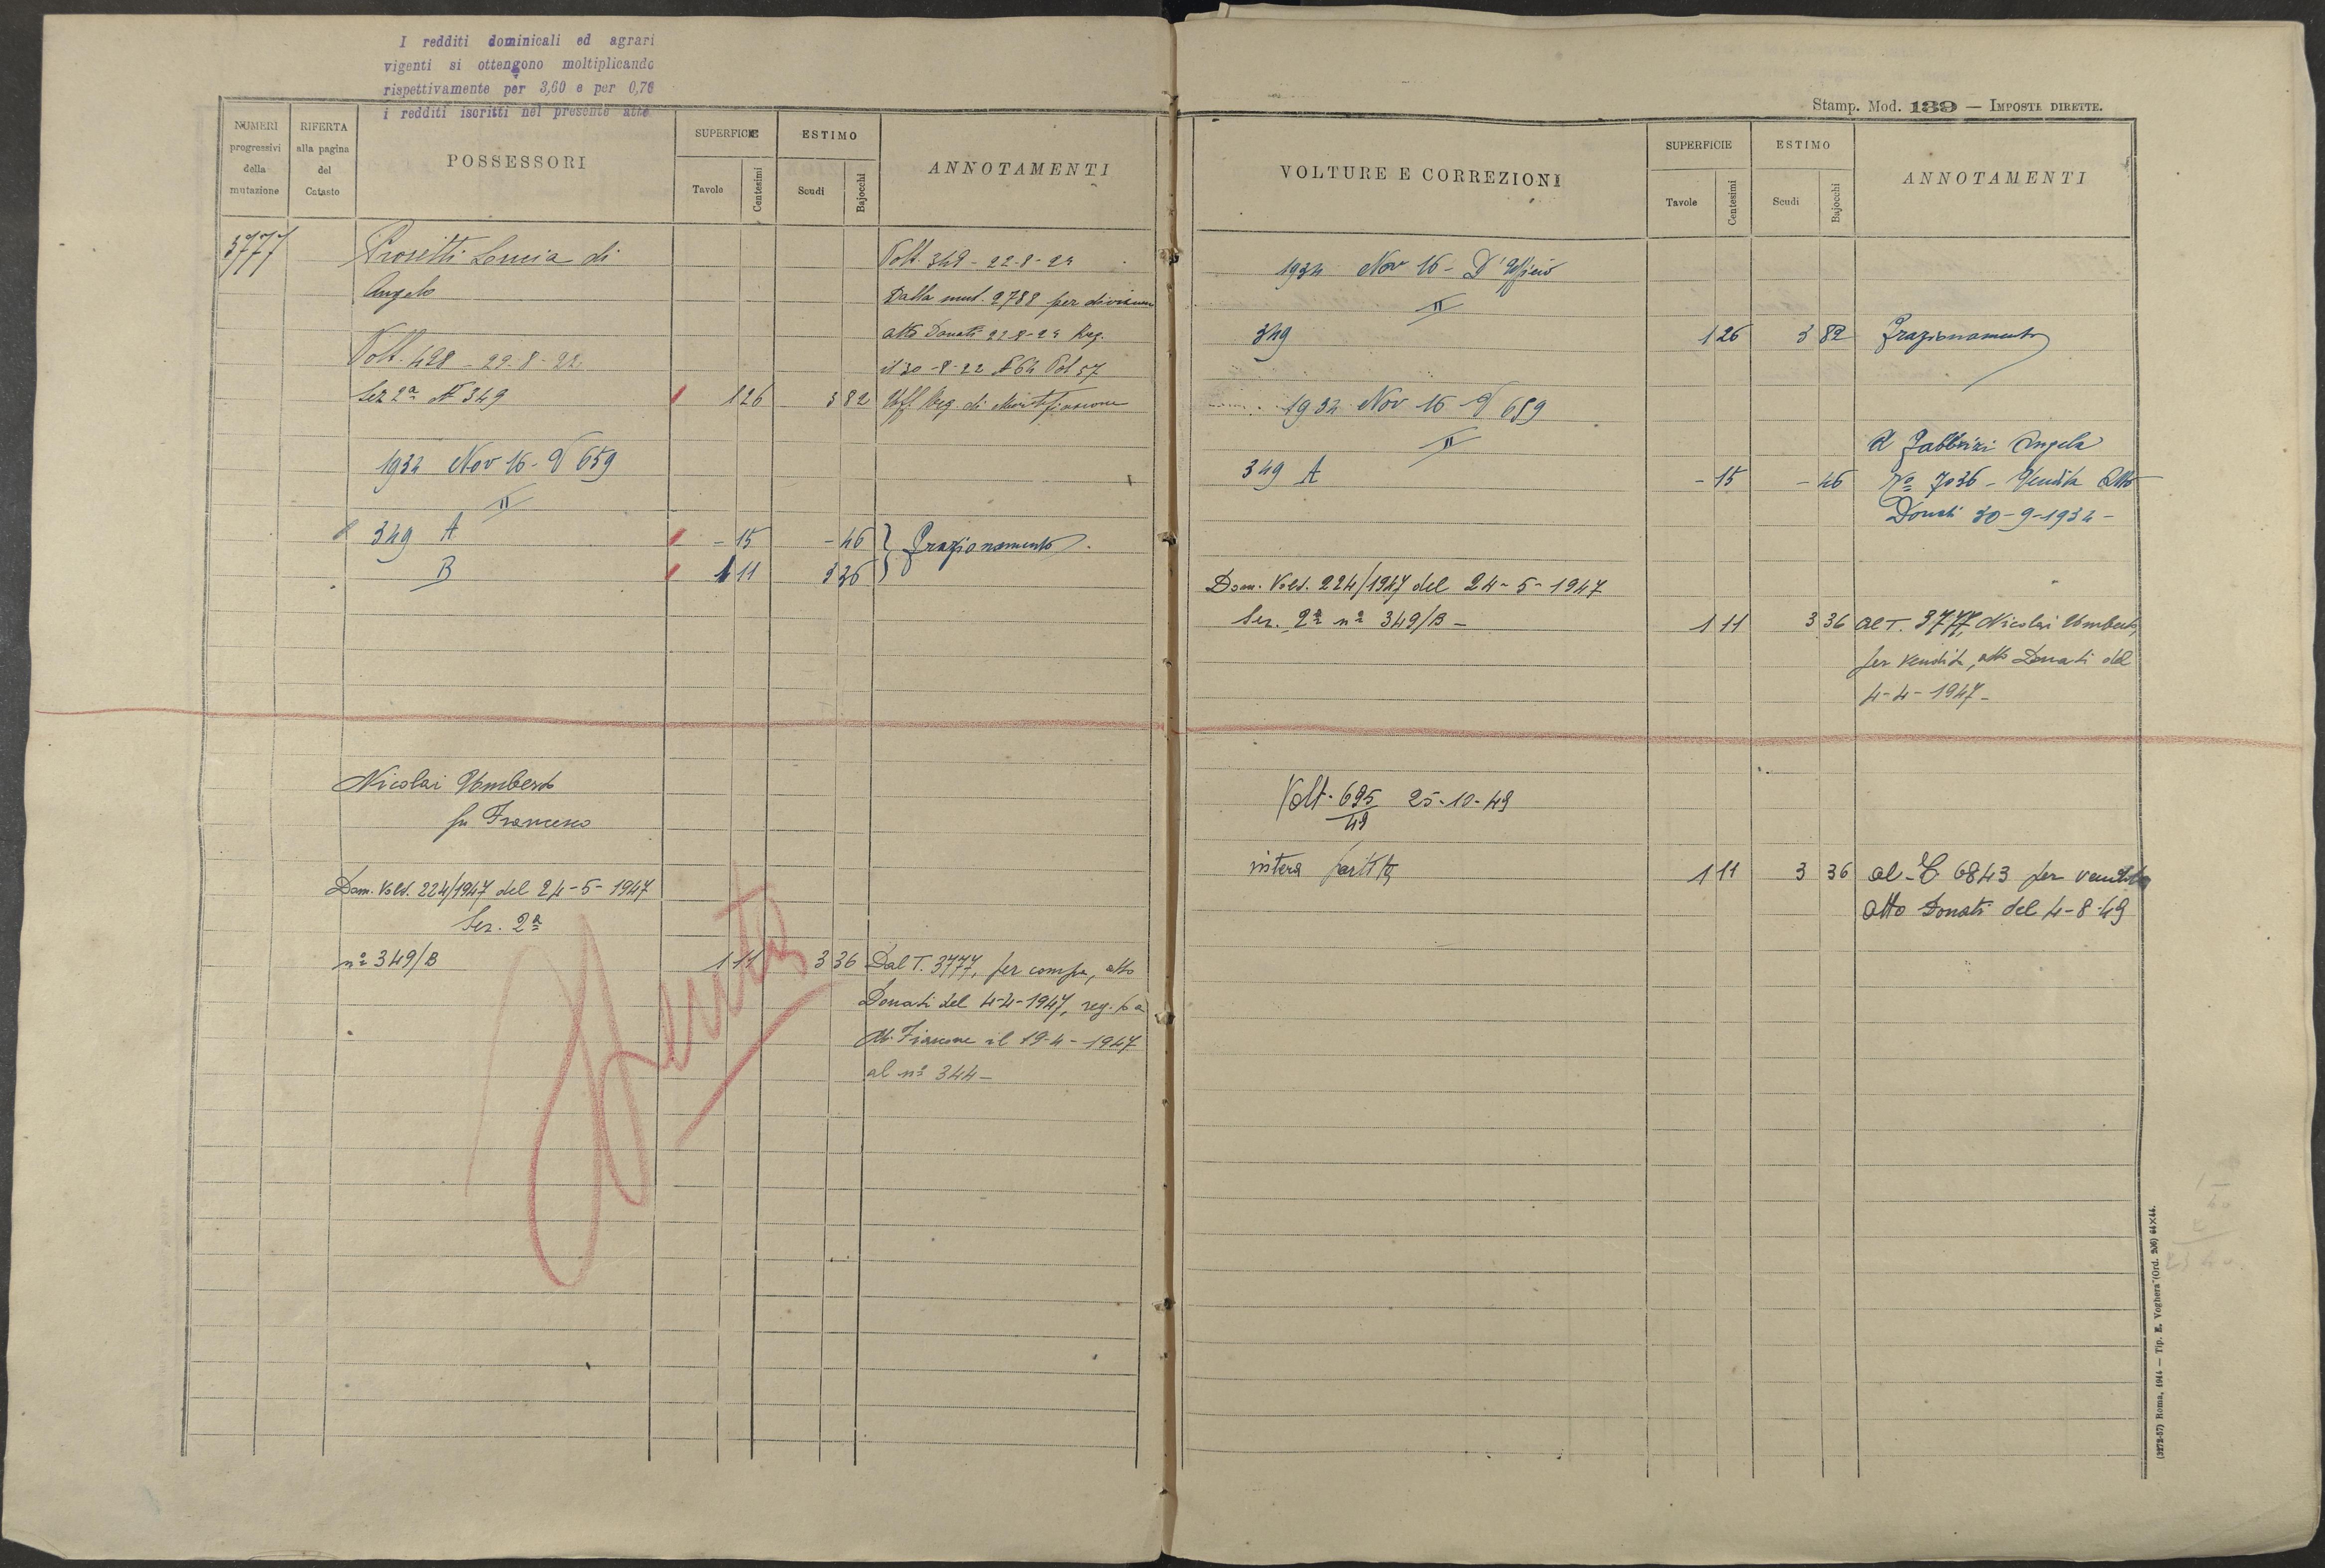 I redditi dominicali ed agrari
vigenti si ottengono moltiplicando
rispettivamente per 3,60 e per 0,70
i redditi iscritti nel presente atto
NUMERI progressivi della mutazione
RIFERTA alla pagina del Catasto
POSSESSORI
SUPERFICIE
Tavole
Centesimi
ESTIMO
Scudi
Bajocchi
ANNOTAMENTI
3777
Prosetti Lucia di
Angelo
Volt. 428 - 22-8-22
Sez 2ª N 349 1 26 3 82
Volt. 349 - 22-8-24
Dalla mut. 2788 per divisione
atto Donati 22-8-24 Reg.
il 30-8-22 N 64 Vol 57
Uff. Reg. di Montefiascone
1934 Nov 16 - D 659
II
349 A - 15 - 46
B 1 11 3 36
Frazionamento
Nicolai Umberto
fu Francesco
Dom. Volt. 224/1947 del 24-5-1947
Sez. 2ª
nº 349/B 1 11 3 36 Dal T. 3777, per compra, atto
Donati del 4-4-1947, reg. to a
M. Fiascone il 19-4-1947
al nº 344 -
Venduto
Stamp. Mod. 139 — IMPOSTE DIRETTE.
VOLTURE E CORREZIONI
SUPERFICIE
Tavole
Centesimi
ESTIMO
Scudi
Bajocchi
ANNOTAMENTI
1934 Nov 16 - D'Ufficio
II
349 1 26 3 82 Frazionamento
1934 Nov 16 D 659
II
349 A - 15 - 46
A Fabbrizi Angela
Nº 7036 - Vendita Atto
Donati 30-9-1934 -
Dom. Volt. 224/1947 del 24-5-1947
Sez. 2ª nº 349/B - 1 11 3 36 Al T. 3777, Nicolai Umberto,
per vendita, atto Donati del
4-4-1947 -
Volt. 695/49 25-10-49
intera partita 1 11 3 36 al T 6843 per vendita
atto Donati del 4-8-49
(3272-57) Roma, 1914 — Tip. E. Voghera (Ord. 206) 64×44.